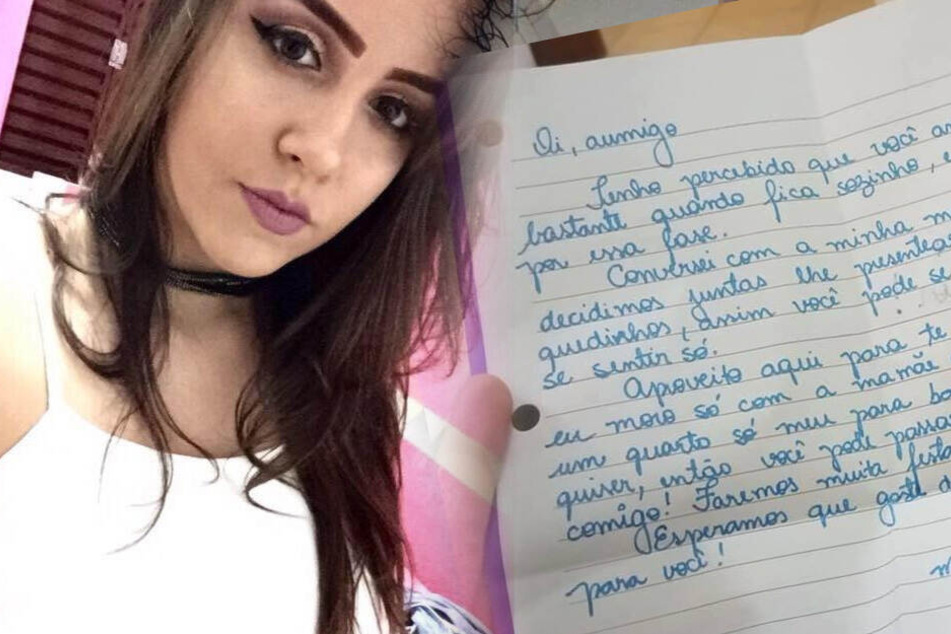 Oi, aumigo
Tenho percebido que você
bastante quando fica sozinho,
por essa fase.
Conversei com a minha
decidimos juntas lhe
quedinhos, assim você pode
se sentir só.
Aproveito aqui para te
eu moro só com a mamãe
um quarto só meu para
quiser, então você pode
comigo! Faremos muita festa
Esperamos que goste
para você!